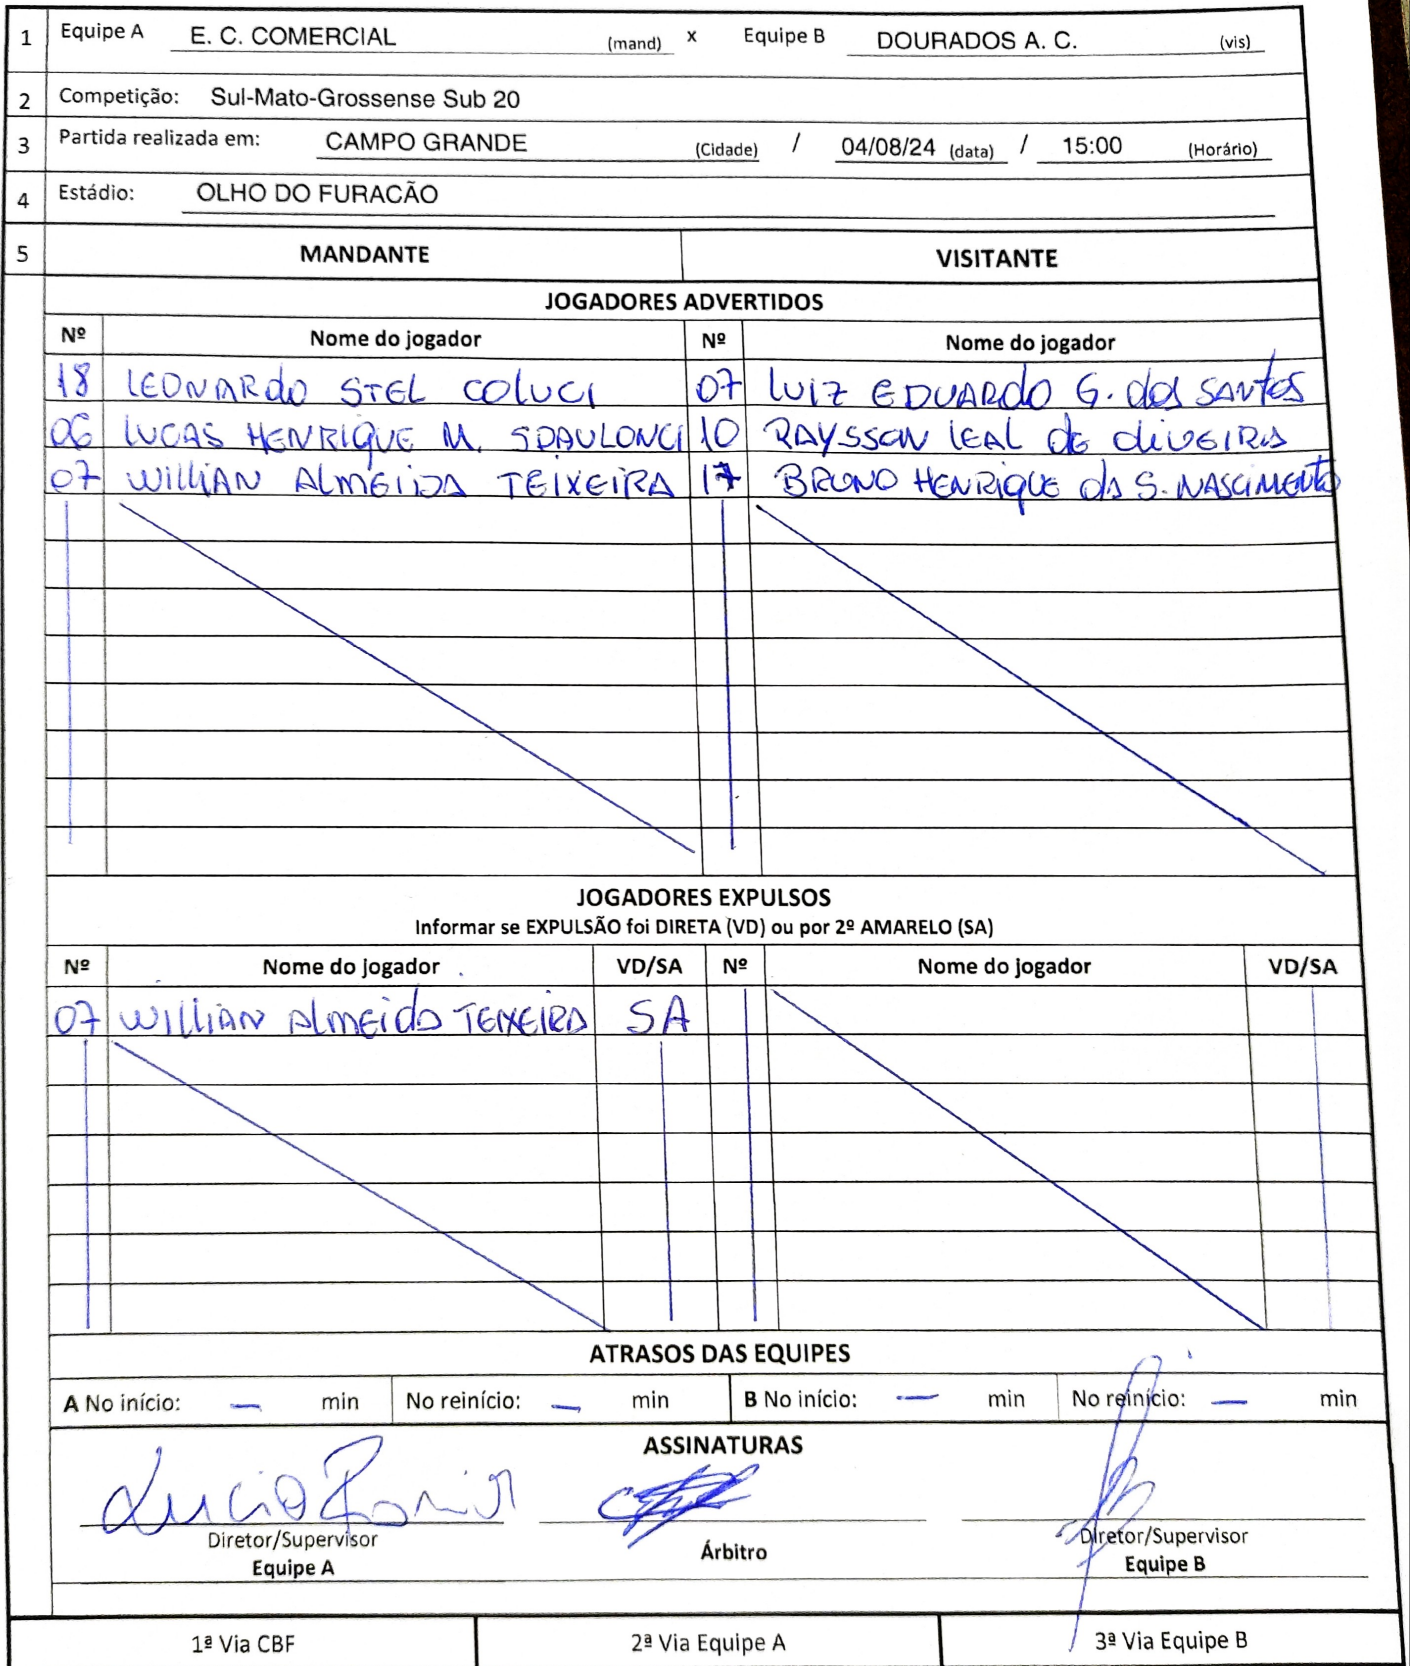 1 Equipe A E. C. COMERCIAL (mand) x Equipe B DOURADOS A. C. (vis)
2 Competição: Sul-Mato-Grossense Sub 20
3 Partida realizada em: CAMPO GRANDE (Cidade) / 04/08/24 (data) / 15:00 (Horário)
4 Estádio: OLHO DO FURACÃO
5 MANDANTE VISITANTE
JOGADORES ADVERTIDOS
Nº Nome do jogador Nº Nome do jogador
18 LEONARdo STEL COLUCI 07 LUIZ EDUARdO G. dos SANtOS
06 LUCAS HENRIQUE M. SPAULONCI 10 RAYSSON LEAL dE OLIVEIRA
07 WILLIAN ALMEIDA TEIXEIRA 17 BRUNO HENRIQUE dA S. NASCIMENtO
JOGADORES EXPULSOS
Informar se EXPULSÃO foi DIRETA (VD) ou por 2º AMARELO (SA)
Nº Nome do jogador VD/SA Nº Nome do jogador VD/SA
07 WILLIAN ALMEIdA TEIXEIRA SA
ATRASOS DAS EQUIPES
A No início: — min No reinício: — min B No início: — min No reinício: — min
ASSINATURAS
Lucio
Diretor/Supervisor Árbitro Diretor/Supervisor
Equipe A Equipe B
1ª Via CBF 2ª Via Equipe A 3ª Via Equipe B